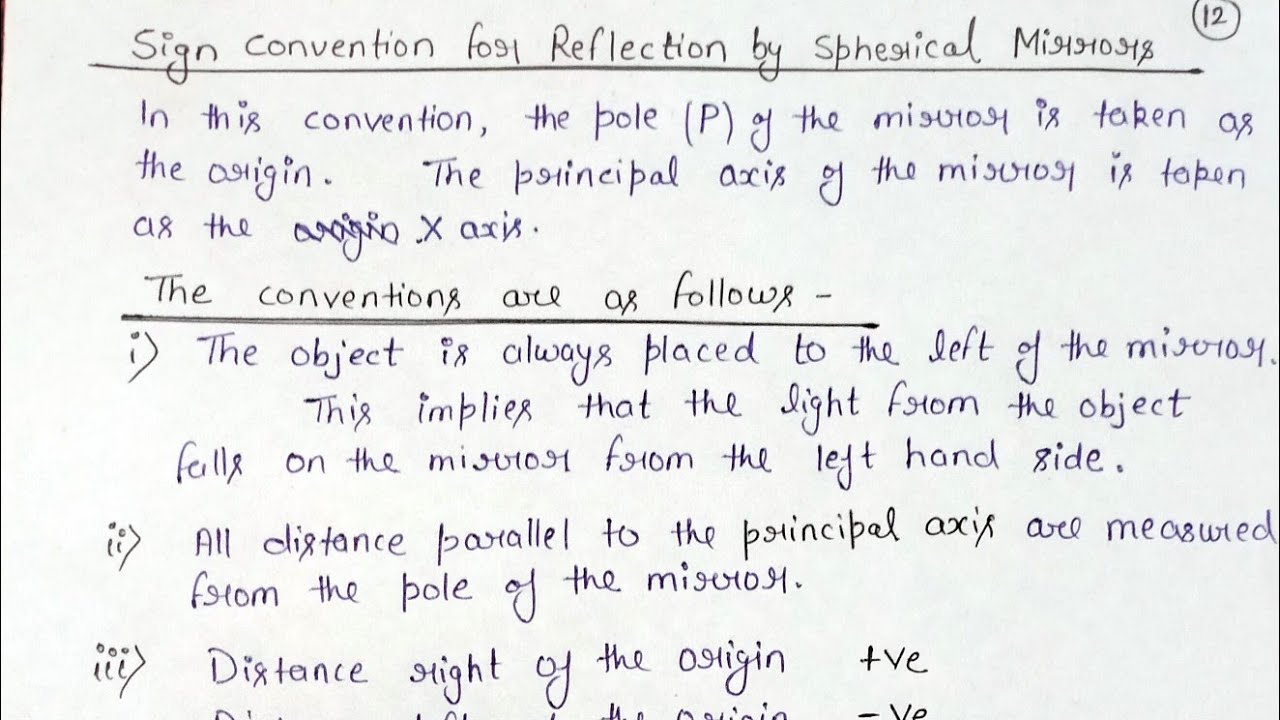 12
Sign Convention for Reflection by Spherical Mirrors
In this convention, the pole (P) of the mirror is taken as
the origin. The principal axis of the mirror is taken
as the origin X axis.
The conventions are as follows -
i) The object is always placed to the left of the mirror.
This implies that the light from the object
falls on the mirror from the left hand side.
ii) All distance parallel to the principal axis are measured
from the pole of the mirror.
iii) Distance right of the origin +ve
the origin -ve